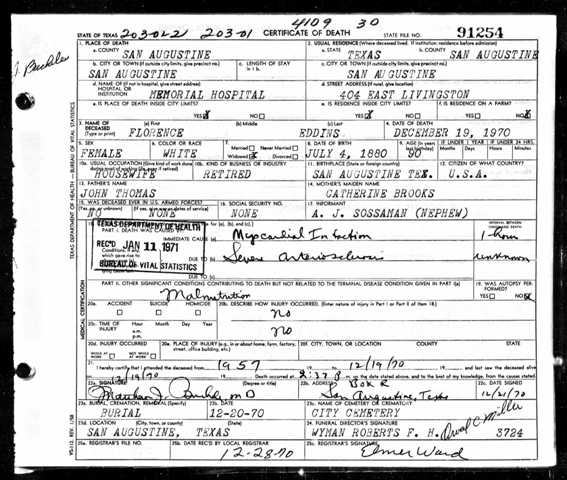 4109 30
STATE OF TEXAS 203-02-2 203-01 CERTIFICATE OF DEATH STATE FILE NO. 91254
1. PLACE OF DEATH 2. USUAL RESIDENCE (Where deceased lived. If institution: residence before admission)
a. COUNTY SAN AUGUSTINE a. STATE TEXAS b. COUNTY SAN AUGUSTINE
b. CITY OR TOWN (If outside city limits, give precinct no.) c. LENGTH OF STAY in 1 b. c. CITY OR TOWN (If outside city limits, give precinct no.)
SAN AUGUSTINE SAN AUGUSTINE
d. NAME OF (If not in hospital, give street address) HOSPITAL OR INSTITUTION MEMORIAL HOSPITAL d. STREET ADDRESS (If rural, give location) 404 EAST LIVINGSTON
e. IS PLACE OF DEATH INSIDE CITY LIMITS? YES NO e. IS RESIDENCE INSIDE CITY LIMITS? YES NO f. IS RESIDENCE ON A FARM? YES NO
3. NAME OF DECEASED (Type or print) (a) First (b) Middle (c) Last 4. DATE OF DEATH
FLORENCE EDDINS DECEMBER 19, 1970
5. SEX 6. COLOR OR RACE 7. Married Never Married Widowed Divorced 8. DATE OF BIRTH 9. AGE (In years last birthday) IF UNDER 1 YEAR IF UNDER 24 HRS.
FEMALE WHITE JULY 4, 1880 90 Months Days Hours Min.
10a. USUAL OCCUPATION (Give kind of work done during most of working life, even if retired) 10b. KIND OF BUSINESS OR INDUSTRY 11. BIRTHPLACE (State or foreign country) 12. CITIZEN OF WHAT COUNTRY?
HOUSEWIFE RETIRED SAN AUGUSTINE TEX. U.S.A.
13. FATHER'S NAME 14. MOTHER'S MAIDEN NAME
JOHN THOMAS CATHERINE BROOKS
15. WAS DECEASED EVER IN U.S. ARMED FORCES? 16. SOCIAL SECURITY NO. 17. INFORMANT
NO NONE NONE A. J. SOSSAMAN (NEPHEW)
TEXAS DEPARTMENT OF HEALTH
REC'D JAN 11 1971
BUREAU OF VITAL STATISTICS
IMMEDIATE CAUSE (a) Myocardial Infarction 1-hour
DUE TO (b) Severe arteriosclerosis unknown
DUE TO (c)
PART II. OTHER SIGNIFICANT CONDITIONS CONTRIBUTING TO DEATH BUT NOT RELATED TO THE TERMINAL DISEASE CONDITION GIVEN IN PART I(a) 19. WAS AUTOPSY PERFORMED? YES NO
Malnutrition
20a. ACCIDENT SUICIDE HOMICIDE 20b. DESCRIBE HOW INJURY OCCURRED. (Enter nature of injury in Part I or Part II of item 18.)
no
20c. TIME OF INJURY Hour Month Day Year a.m. p.m. no
20d. INJURY OCCURRED WHILE AT WORK NOT WHILE AT WORK 20e. PLACE OF INJURY (e.g., in or about home, farm, factory, street, office building, etc.) 20f. CITY, TOWN, OR LOCATION COUNTY STATE
21. I hereby certify that I attended the deceased from 1957 to 12/19/70 and last saw the deceased alive
on 12/19/70 Death occurred at m. on the date stated above; and to the best of my knowledge, from the causes stated.
22a. SIGNATURE (Degree or title) 22b. ADDRESS Box R 22c. DATE SIGNED
MD San Augustine, Texas 12/21/70
23a. BURIAL, CREMATION, REMOVAL (Specify) 23b. DATE 23c. NAME OF CEMETERY OR CREMATORY
BURIAL 12-20-70 CITY CEMETERY
23d. LOCATION (City, town, or county) (State) 24. FUNERAL DIRECTOR'S SIGNATURE
SAN AUGUSTINE, TEXAS WYMAN ROBERTS F. H. Orval C Miller 3724
25a. REGISTRAR'S FILE NO. 25b. DATE REC'D BY LOCAL REGISTRAR 25c. REGISTRAR'S SIGNATURE
12-28-70 Elmer Ward